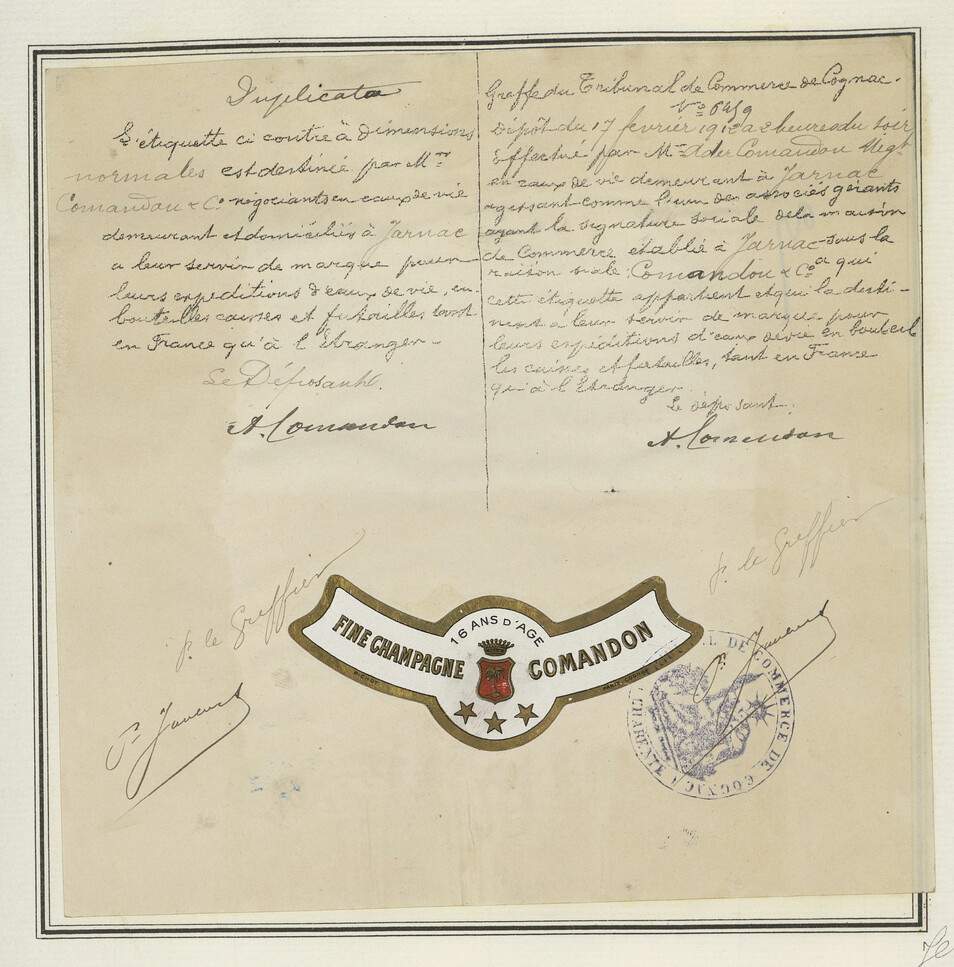 Duplicata
L'étiquette ci contre à dimensions
normales est destinée par Mrs
Comandon & Co négociants en eaux de vie
demeurant et domiciliés à Jarnac
a leur servir de marque pour
leurs expéditions d'eaux de vie, en
bouteilles caisses et futailles tant
en France qu'à l'Etranger.
Le Déposant.
A. Comandon
Greffe du Tribunal de Commerce de Cognac.
No
Dépôt du 17 février 191 a 2 heures du soir
Effectué par Mr Comandon Negt
en eaux de vie demeurant à Jarnac
agissant comme l'un des associés gérants
ayant la signature sociale de la maison
de Commerce établie à Jarnac sous la
raison sociale: Comandon & Co a qui
cette étiquette appartient et qui la desti-
nent a leur servir de marque pour
leurs expéditions d'eaux de vie en bouteil
les caisses et futailles, tant en France
qu'à l'Etranger.
Le déposant.
A. Comandon
P. le Greffier
P. le Greffier
16 ANS D'AGE
FINE CHAMPAGNE COMANDON
DE COMMERCE DE COGNAC
CHARENTE